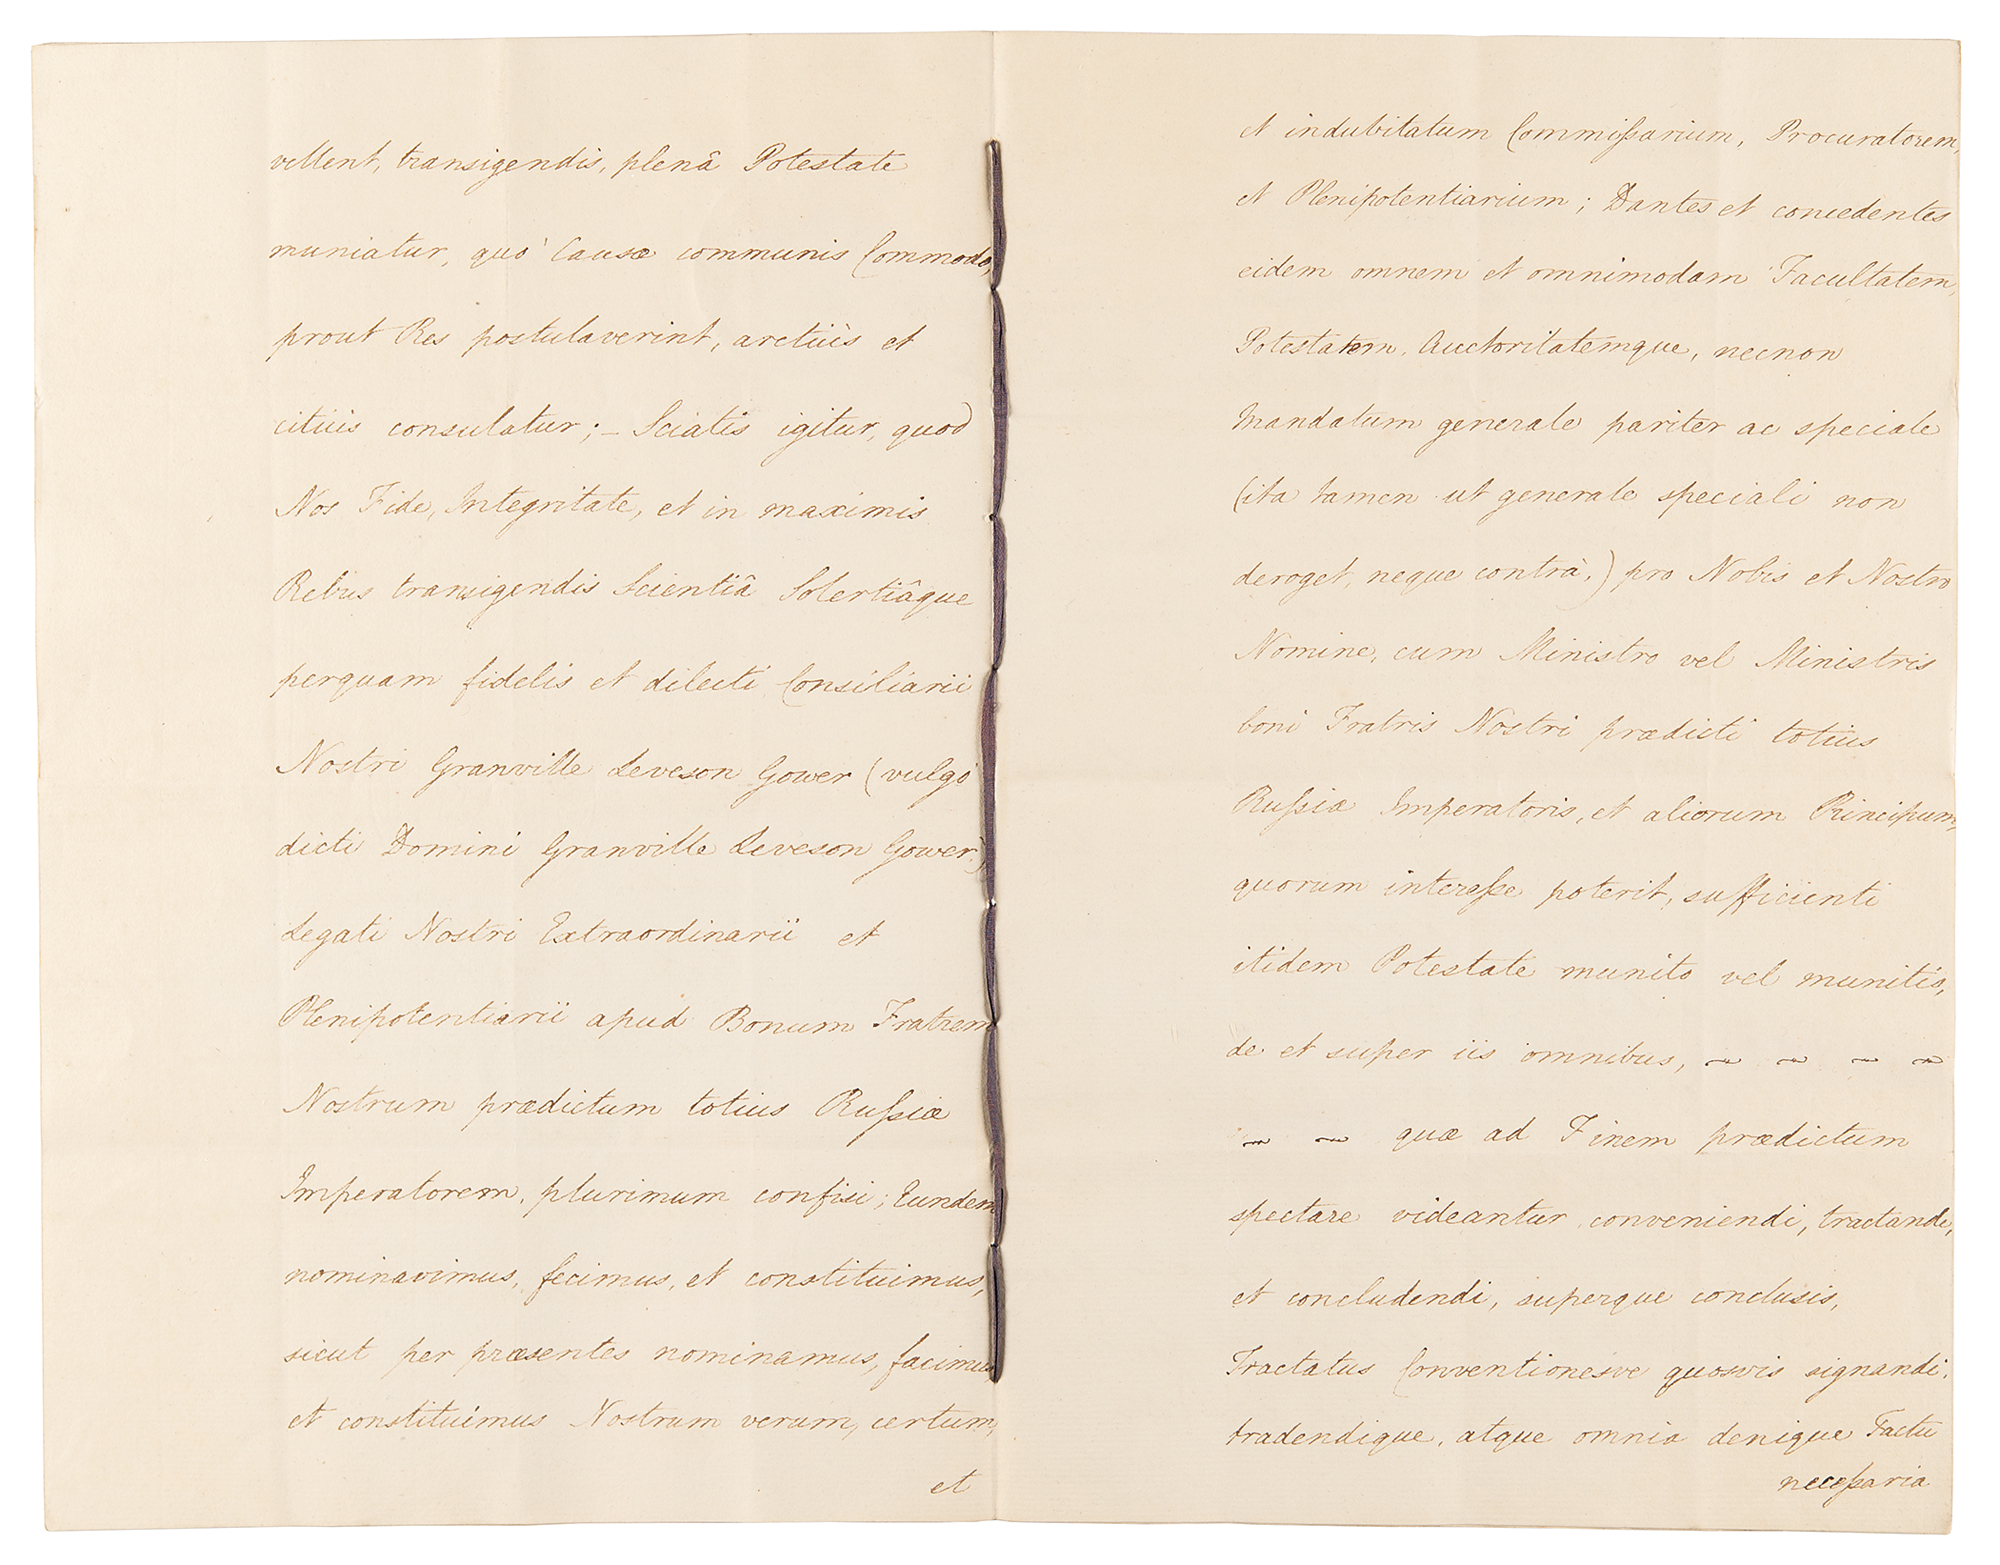 vellent, transigendis, plenâ Potestate
muniatur, quò Causæ communis Commodo,
prout Res postulaverint, arctiùs et
citiùs consulatur; – Sciatis igitur, quod
Nos Fide, Integritate, et in maximis
Rebus transigendis Scientiâ Solertiâque
perquam fidelis et dilecti Consiliarii
Nostri Granville Leveson Gower (vulgò
dicti Domini Granville Leveson Gower,)
Legati Nostri Extraordinarii et
Plenipotentiarii apud Bonum Fratrem
Nostrum prædictum totius Rußiæ
Imperatorem, plurimum confisi; Eundem
nominavimus, fecimus, et constituimus,
sicut per præsentes nominamus, facimus,
et constituimus Nostrum verum, certum,
et
et indubitatum Commißarium, Procuratorem,
et Plenipotentiarium; Dantes et concedentes
eidem omnem et omnimodam Facultatem,
Potestatem, Auctoritatemque, necnon
Mandatum generale pariter ac speciale
(ita tamen ut generale speciali non
deroget, neque contrà,) pro Nobis et Nostro
Nomine, cum Ministro vel Ministris
boni Fratris Nostri prædicti totius
Rußiæ Imperatoris, et aliorum Principum,
quorum intereße poterit, sufficienti
itidem Potestate munito vel munitis,
de et super iis omnibus, ~ ~ ~ ~
~ ~ quæ ad Finem prædictum
spectare videantur conveniendi, tractandi,
et concludendi, superque conclusis,
Tractatus Conventionesve quosvis signandi,
tradendique, atque omnia denique Factu
neceßaria